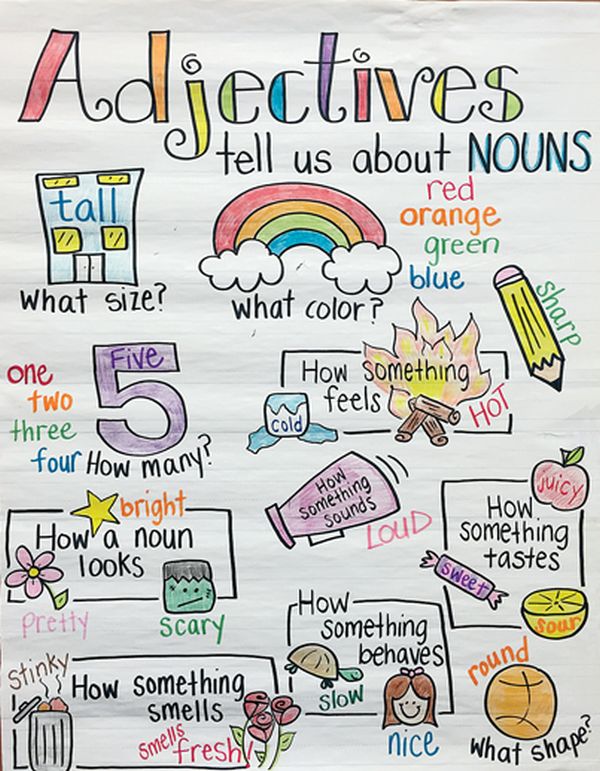 Adjectives
tell us about NOUNS
tall
What size?
What color?
red
orange
green
blue
sharp
one
two
three
four
Five
5
How many?
How something
feels
cold
HOT
How
something
sounds
LOUD
How
something
tastes
juicy
sweet
sour
bright
How a noun
looks
pretty
scary
How
something
behaves
slow
nice
stinky
How something
smells
smells
fresh!
round
What shape?